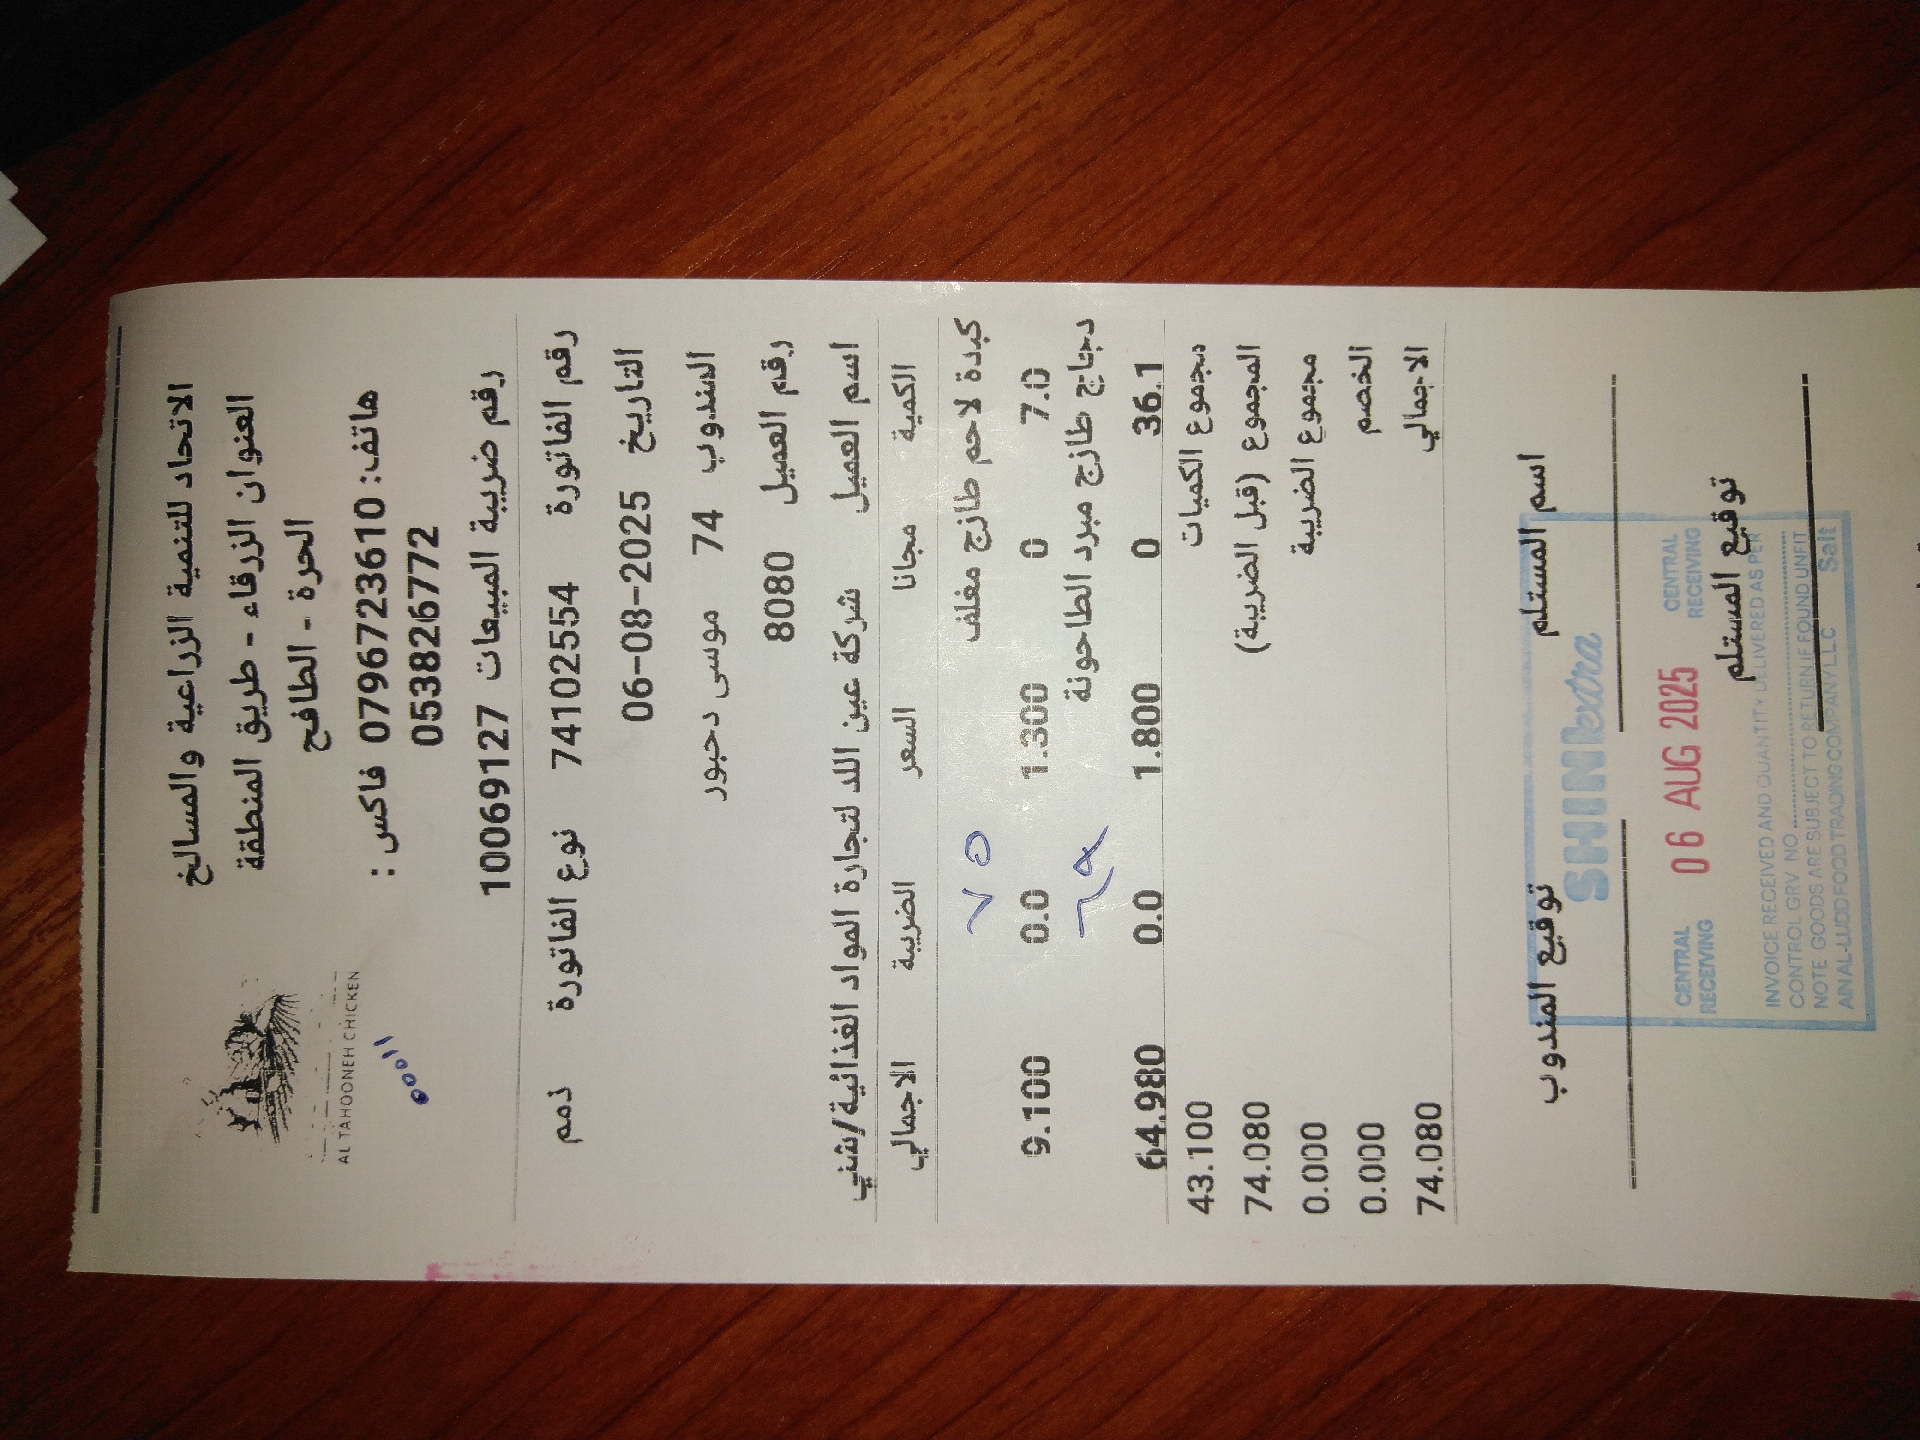 الاتحاد للتنمية الزراعية والمسالخ
العنوان الزرقاء - طريق المنطقة
الحرة - الطافح
هاتف: 0796723610 فاكس :
053826772
رقم ضريبة المبيعات 10069127
AL TAHOONEH CHICKEN
رقم الفاتورة 74102554 نوع الفاتورة ذمم
التاريخ 06-08-2025
المندوب 74 موسى دحبور
رقم العميل 8080
اسم العميل شركة عين اللد لتجارة المواد الغذائية/شني
الكمية مجانا السعر الضريبة الاجمالي
كبدة لاحم طازج مغلف
7.0 0 1.300 0.0 9.100
دجاج طازج مبرد الطاحونة
36.1 0 1.800 0.0 64.980
مجموع الكميات 43.100
المجموع (قبل الضريبة) 74.080
مجموع الضريبة 0.000
الخصم 0.000
الاجمالي 74.080
اسم المستلم توقيع المندوب
توقيع المستلم
SHINIextra
CENTRAL RECEIVING 06 AUG 2025 CENTRAL RECEIVING
INVOICE RECEIVED AND QUANTITY DELIVERED AS PER
CONTROL GRV NO
NOTE GOODS ARE SUBJECT TO RETURN IF FOUND UNFIT
AINAL-LUDD FOOD TRADING COMPANY LLC Salt